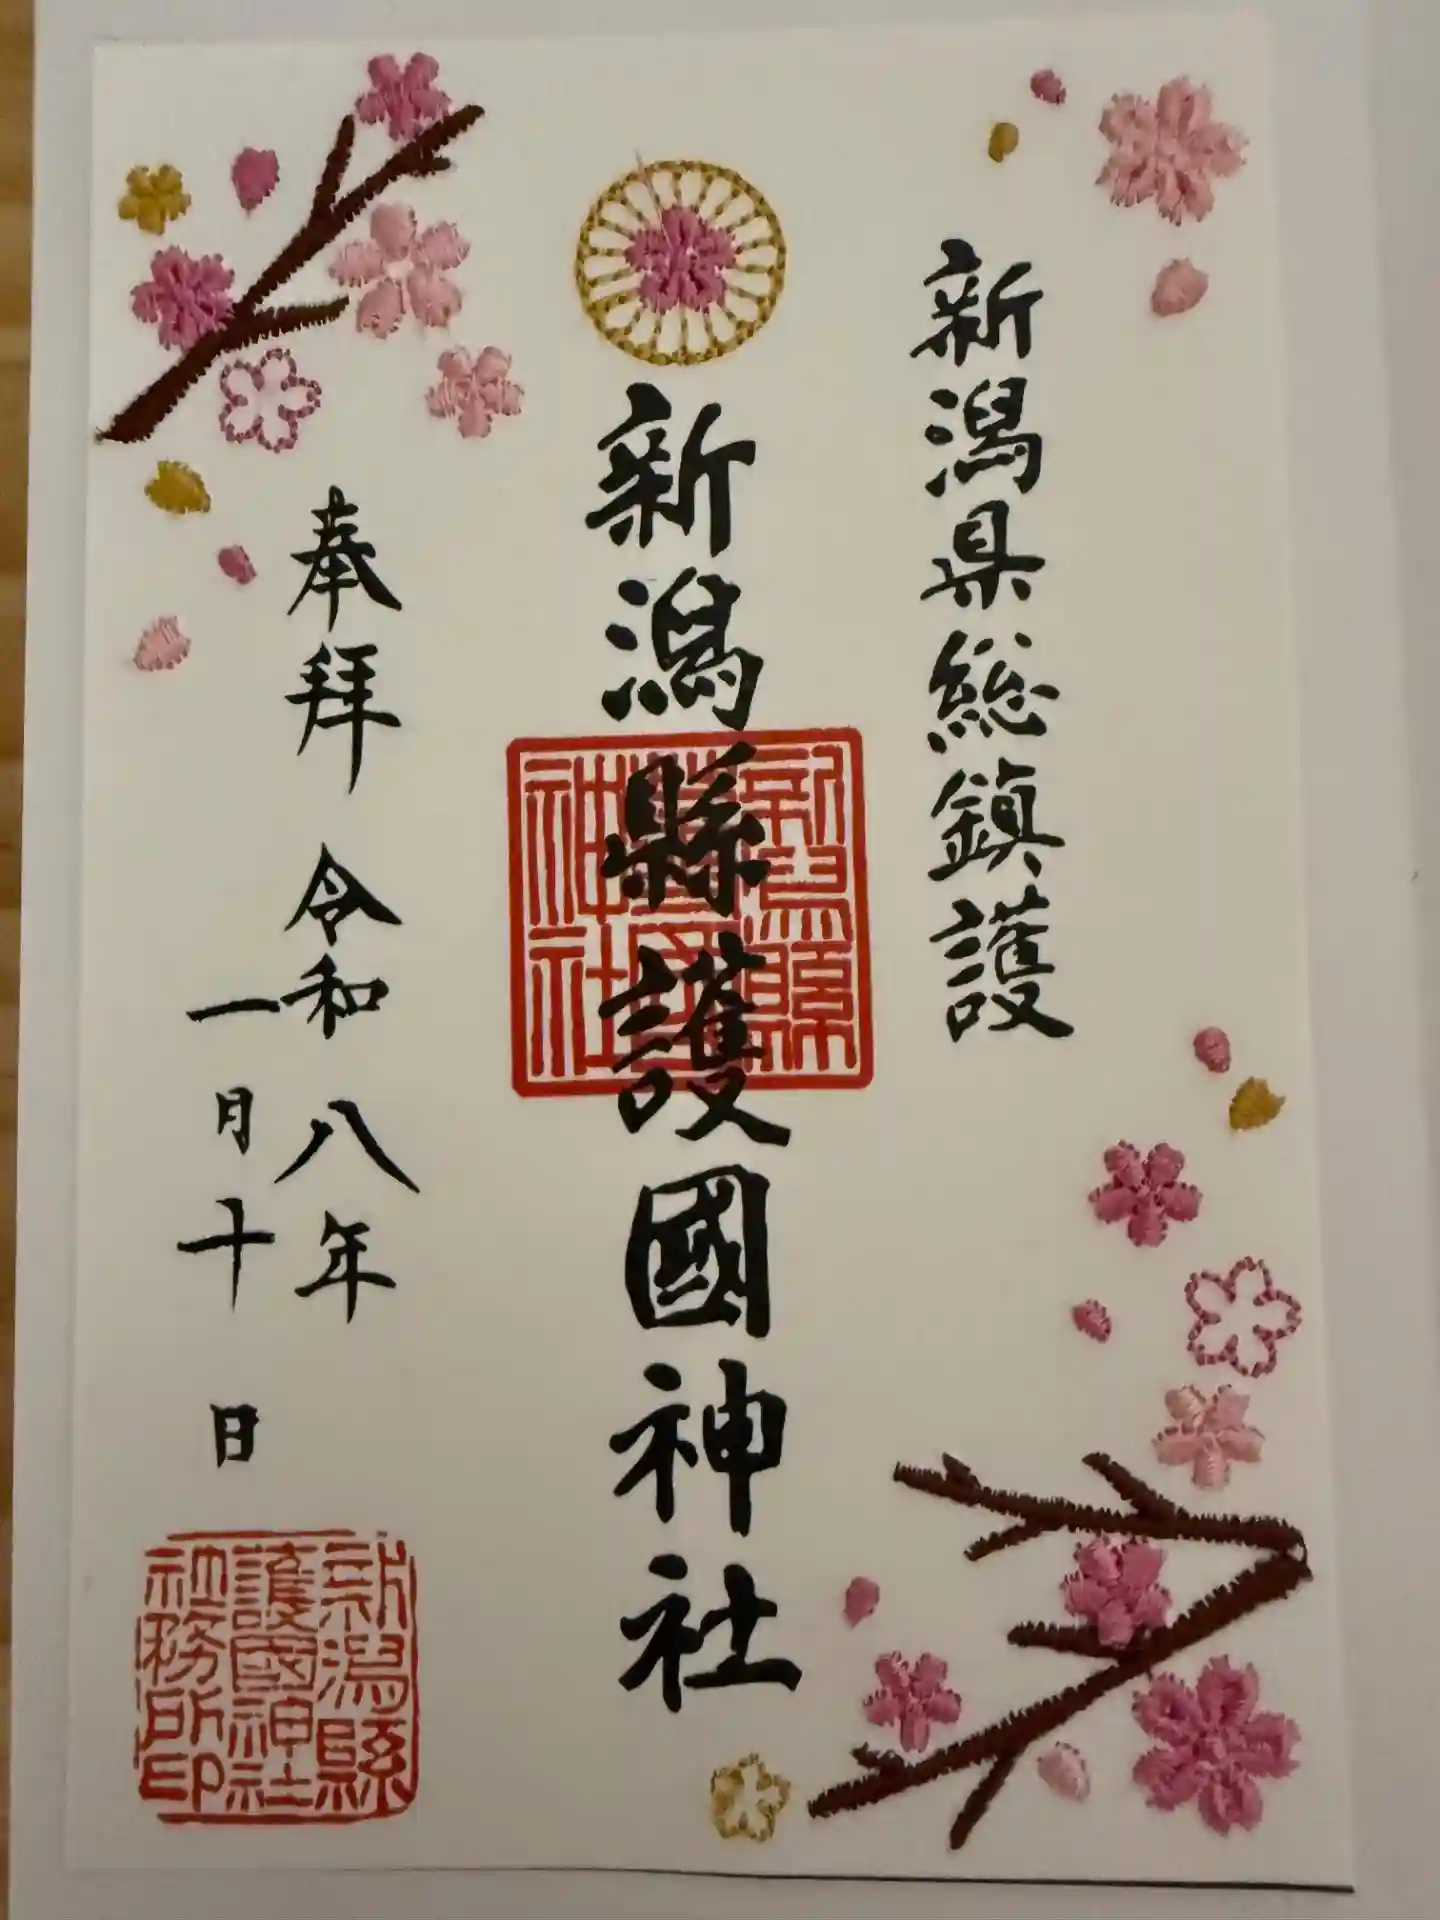 新潟県総鎮護
新潟縣護國神社
新潟縣護國神社
奉拝 令和八年
一月十日
新潟縣護國神社社務所印